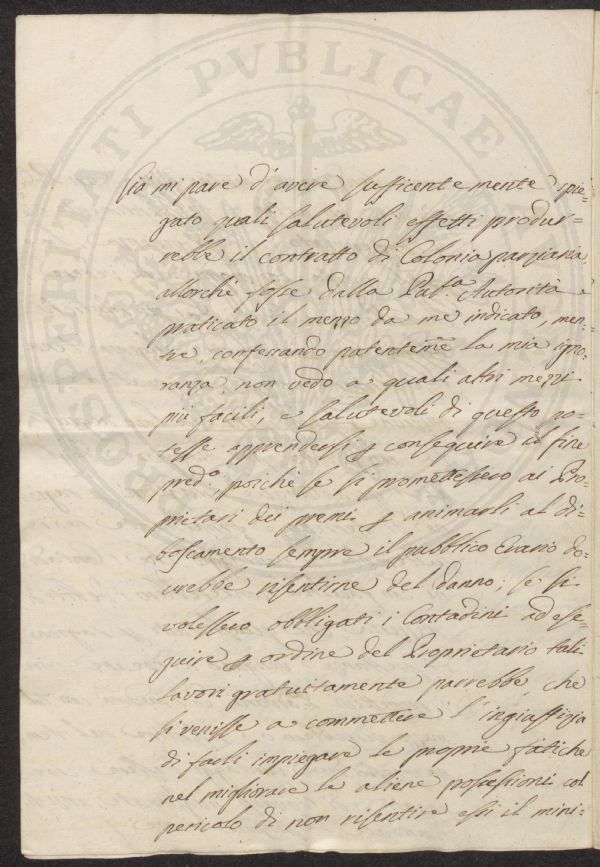 PROSPERITATI PVBLICAE
Già mi pare d'avere sufficentemente spie-
gato quali salutevoli effetti produr-
rebbe il contratto di Colonia parziaria
allorchè fosse dalla Pub.ca Autorità
praticato il mezzo da me indicato, men-
tre, confessando patentem̅e̅ la mia igno-
ranza, non vedo a quali altri mezzi
più facili, e salutevoli di questo po-
tesse apprendersi p conseguire il fine
pred.o, poichè se si promettessero ai Pro-
prietari dei premi p animarli al di-
boscamento sempre il pubblico Erario do-
vrebbe risentirne del danno; se si
volessero obbligati i Contadini ad ese-
guire p ordine del Proprietario tali
lavori gratuittamente parrebbe, che
si venisse a commettere l'ingiustizia
di farli impiegare le proprie fatiche
nel migliorare le aliene possessioni col
pericolo di non risentire essi il mini-